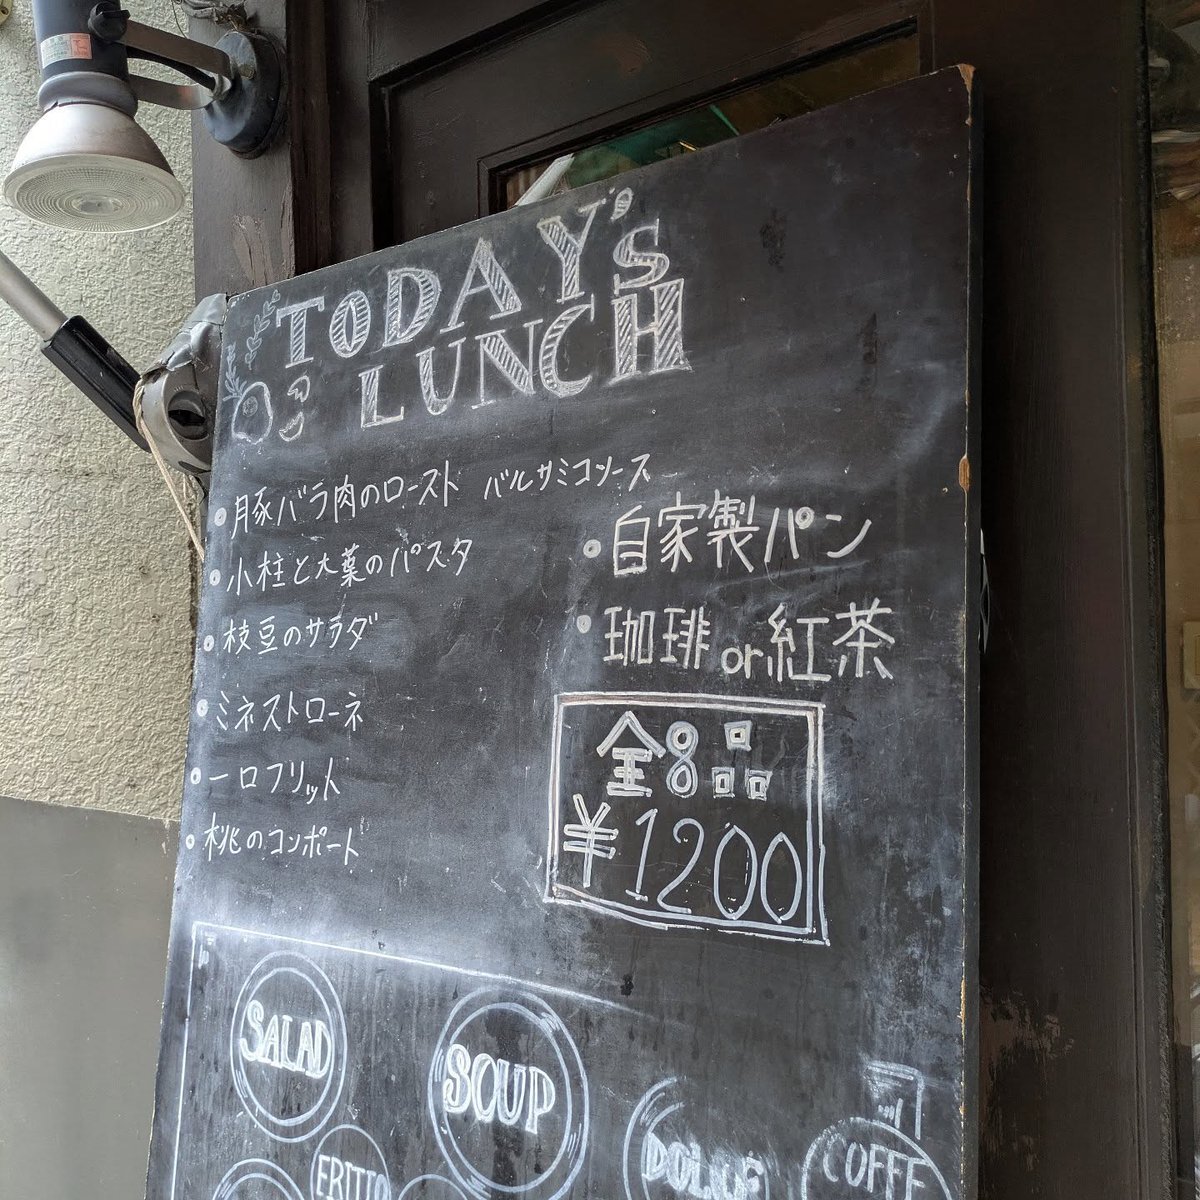 TODAY's
LUNCH
• 豚バラ肉のロースト バルサミコソース
• 小柱と大葉のパスタ
• 枝豆のサラダ
• ミネストローネ
• 一口フリット
• 桃のコンポート
• 自家製パン
• 珈琲or紅茶
全8品
¥1200
SALAD
SOUP
FRITTO
DOLCE
COFFE